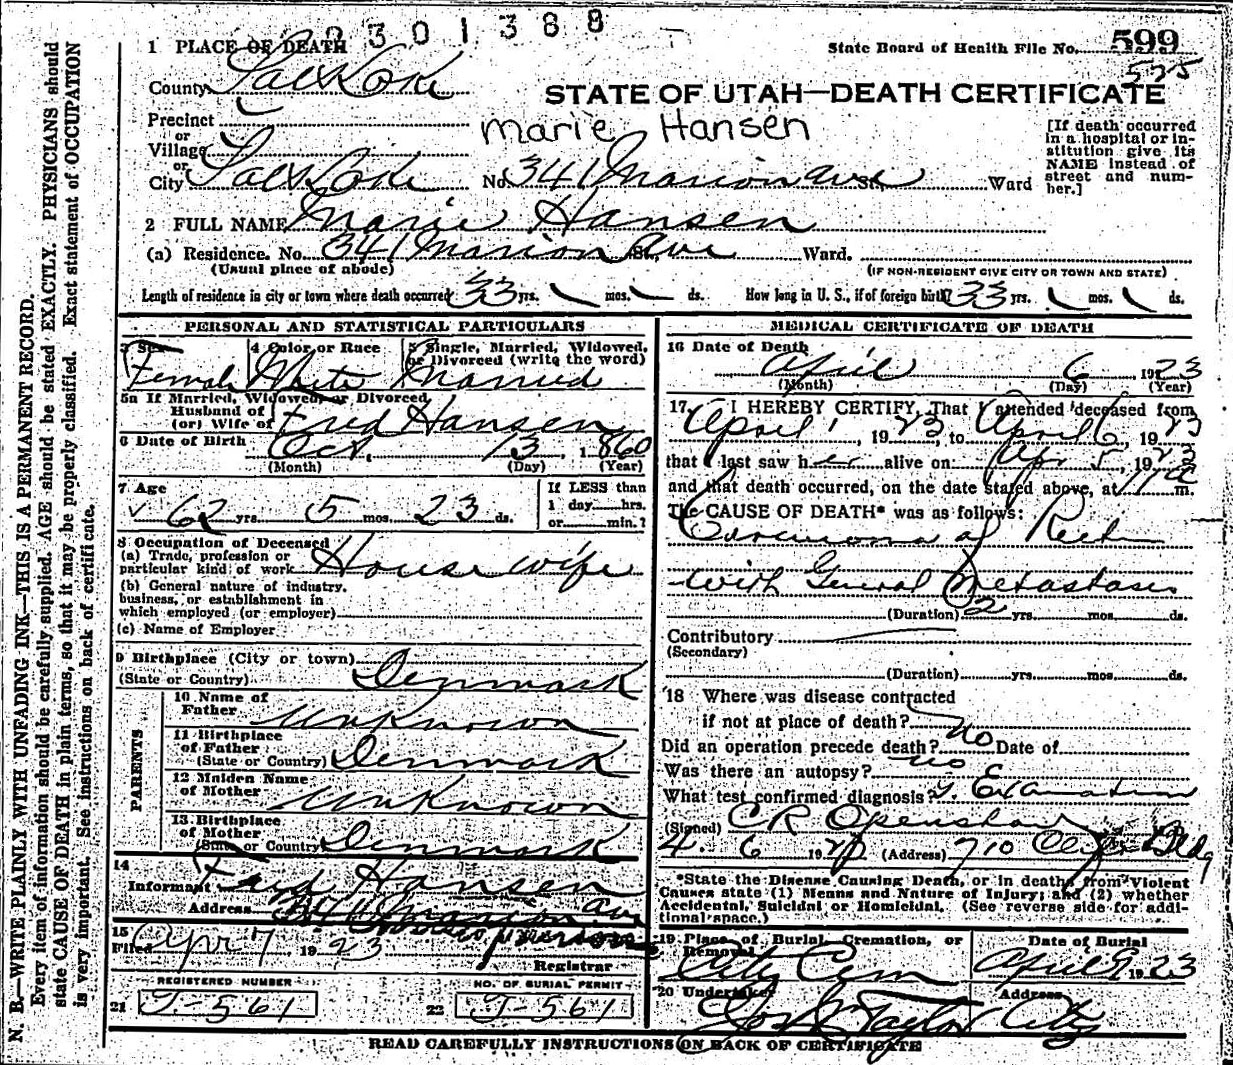 2301388
1 PLACE OF DEATH
State Board of Health File No. 599
525
County Salt Lake
STATE OF UTAH—DEATH CERTIFICATE
Precinct
or
Village
Marie Hansen
[If death occurred in a hospital or institution give its NAME instead of street and number.]
or
City Salt Lake No. 341 Marion Ave St., Ward
2 FULL NAME Marie Hansen
(a) Residence. No. 341 Marion Ave St., Ward.
(Usual place of abode) (IF NON-RESIDENT GIVE CITY OR TOWN AND STATE)
Length of residence in city or town where death occurred 33 yrs. mos. ds. How long in U. S., if of foreign birth? 33 yrs. mos. ds.
PERSONAL AND STATISTICAL PARTICULARS
3 Sex 4 Color or Race 5 Single, Married, Widowed, or Divorced (write the word)
Female White Married
5a If Married, Widowed, or Divorced
Husband of
(or) Wife of Fred Hansen
6 Date of Birth Oct. 13, 1860
(Month) (Day) (Year)
7 Age If LESS than
62 yrs. 5 mos. 23 ds. 1 day hrs.
or min.?
8 Occupation of Deceased
(a) Trade, profession or
particular kind of work House wife
(b) General nature of industry,
business, or establishment in
which employed (or employer)
(c) Name of Employer
9 Birthplace (City or town)
(State or Country) Denmark
PARENTS
10 Name of
Father Unknown
11 Birthplace
of Father
(State or Country) Denmark
12 Maiden Name
of Mother Unknown
13 Birthplace
of Mother
(State or Country) Denmark
14
Informant Fred Hansen
Address 341 Marion Ave
15
Filed Apr 7, 1923
Registrar
REGISTERED NUMBER NO. OF BURIAL PERMIT
21 J-561 22 J-561
MEDICAL CERTIFICATE OF DEATH
16 Date of Death
April 6 1923
(Month) (Day) (Year)
17 I HEREBY CERTIFY, That I attended deceased from
April 1, 1923, to April 6, 1923
that I last saw her alive on Apr 5, 1923
and that death occurred, on the date stated above, at 11 a m.
The CAUSE OF DEATH* was as follows:
Carcinoma of Rectum
with General Metastases
(Duration) 2 yrs. mos. ds.
Contributory
(Secondary)
(Duration) yrs. mos. ds.
18 Where was disease contracted
if not at place of death?
Did an operation precede death? no Date of
Was there an autopsy? no
What test confirmed diagnosis? Examination
(Signed) C R Openshaw
4. 6 19 (Address) 710 Bldg
*State the Disease Causing Death, or in deaths from Violent
Causes state (1) Means and Nature of Injury; and (2) whether
Accidental, Suicidal or Homicidal. (See reverse side for addi-
tional space.)
19 Place of Burial, Cremation, or Removal Date of Burial
City Cem April 9 1923
20 Undertaker Address
Taylor City
READ CAREFULLY INSTRUCTIONS ON BACK OF CERTIFICATE
N. B.—WRITE PLAINLY WITH UNFADING INK—THIS IS A PERMANENT RECORD.
Every item of information should be carefully supplied. AGE should be stated EXACTLY. PHYSICIANS should
state CAUSE OF DEATH in plain terms, so that it may be properly classified. Exact statement of OCCUPATION
is very important. See instructions on back of certificate.